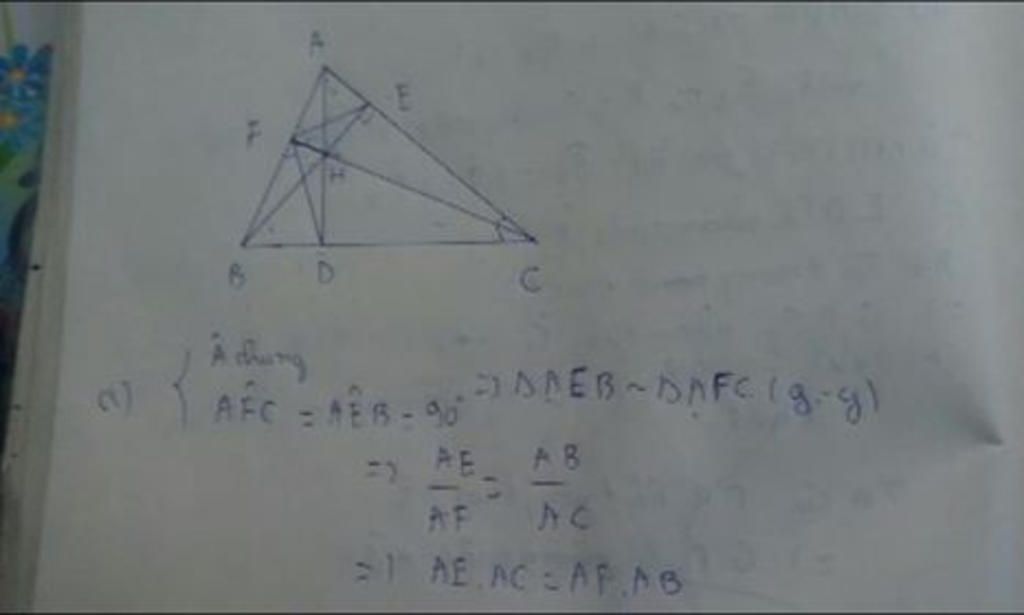 A
E
F
H
B D C
a) { Â chung
AF̂C = AÊB = 90° => ΔAEB ~ ΔAFC (g.-g)
=> AE/AF = AB/AC
=> AE.AC = AF.AB